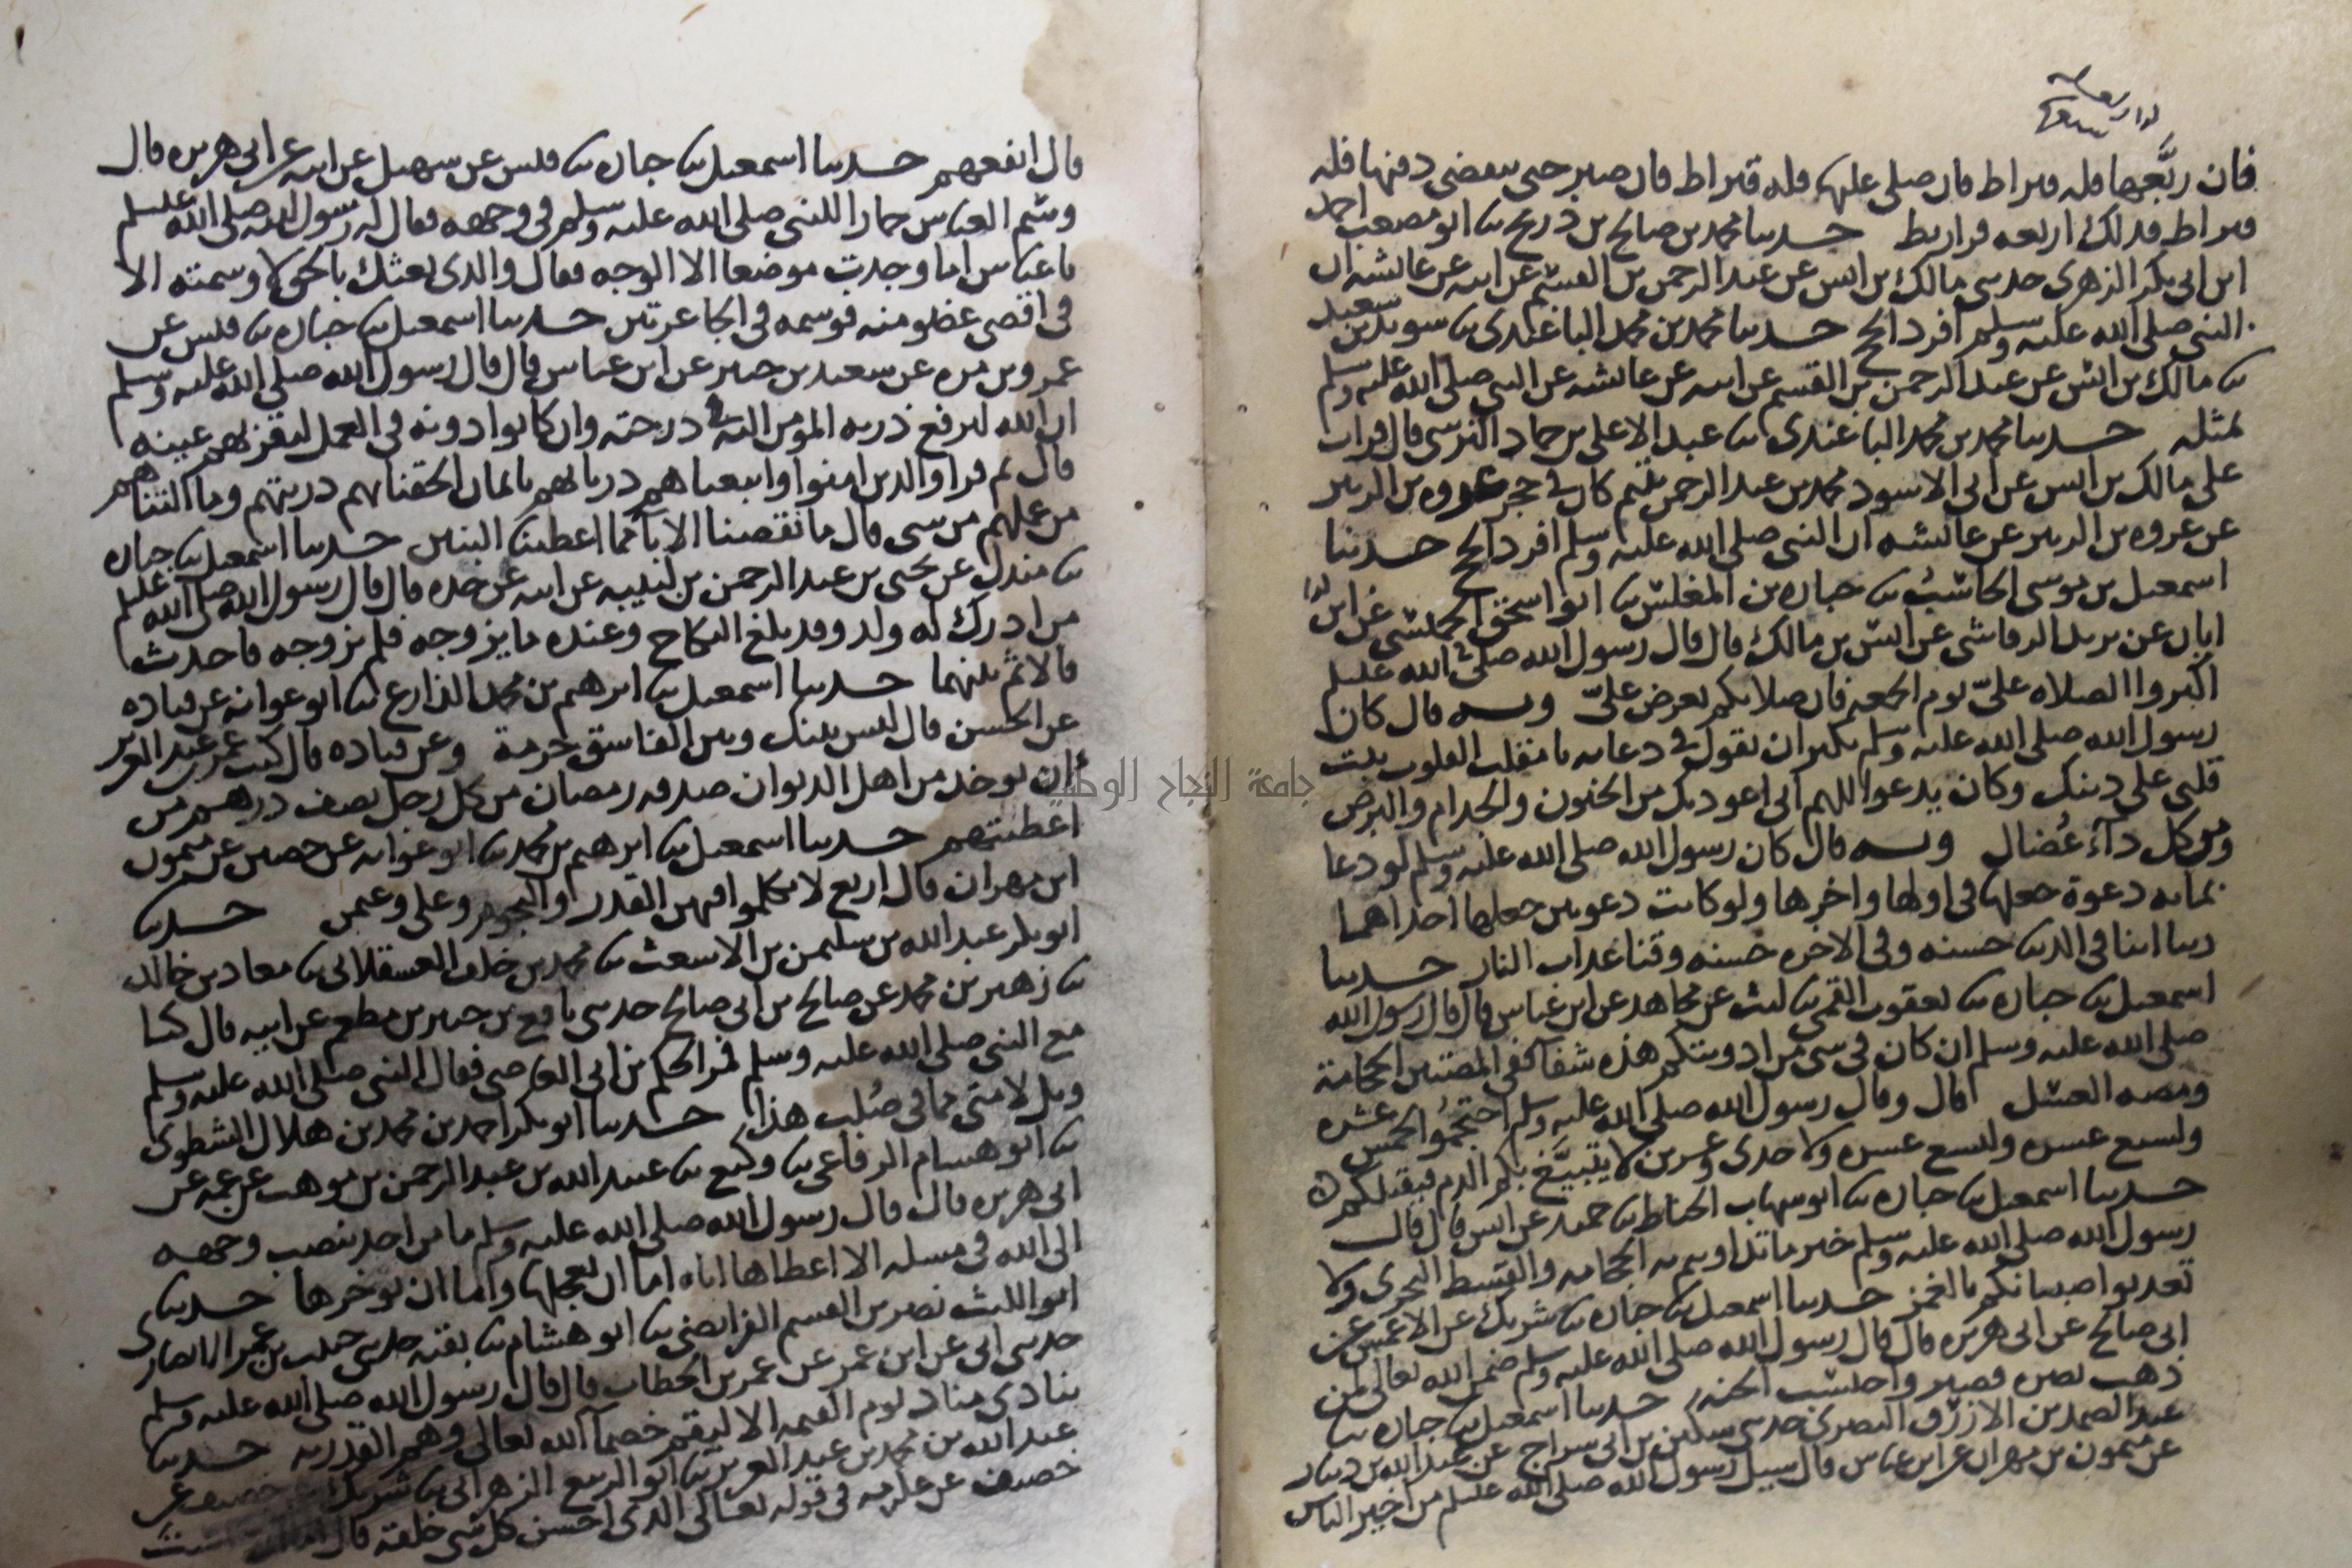 فان ربَّعها فله قيراط فان صلى عليها فله قيراط فان صبر حتى يقضى دفنها فله
قيراط فذلك اربعه قراريط حدثنا محمد بن صالح بن ذريح ثنا ابو مصعب احمد
ابن ابى بكر الزهرى حدثنى مالك بن انس عن عبد الرحمن بن القسم عن ابيه عن عائشه ان
النبى صلى الله عليه وسلم افرد الحج حدثنا محمد بن محمد الباغندى ثنا سويد بن سعيد
ثنا مالك بن انس عن عبد الرحمن بن القسم عن ابيه عن عائشه عن النبى صلى الله عليه وسلم
بمثله حدثنا محمد بن محمد الباغندى ثنا عبد الاعلى بن حماد النرسى قال قرات
على مالك بن انس عن ابى الاسود محمد بن عبد الرحمن يتيم كان فى حجر عروه بن الزبير
عن عروه بن الزبير عن عائشه ان النبى صلى الله عليه وسلم افرد الحج حدثنا
اسمعيل بن موسى الحاسب ثنا جباره بن المغلس ثنا ابو اسحق الحميسى عن
ابان عن يزيد الرقاشى عن انس بن مالك قال قال رسول الله صلى الله عليه وسلم
اكثروا الصلاه علىّ يوم الجمعه فان صلاتكم تعرض علىّ وبه قال كان
رسول الله صلى الله عليه وسلم يكثر ان يقول فى دعائه يا مقلب القلوب ثبت
قلبى على دينك وكان يدعوا اللهم انى اعوذ بك من الجنون والجذام والبرص
ومن كل دآء عُضال وبه قال كان رسول الله صلى الله عليه وسلم لو دعا
بمائه دعوة جعلها فى اولها واخرها ولو كانت دعوتين جعلها احداهما
ربنا اتنا فى الدنيا حسنه وفى الاخره حسنه وقنا عذاب النار حدثنا
اسمعيل ثنا جباره ثنا يعقوب القمى ثنا ليث عن مجاهد عن ابن عباس قال قال رسول الله
صلى الله عليه وسلم ان كان فى شى من ادويتكم هذه شفا ففى المصتين الحجامة
ومصه العسل قال وقال رسول الله صلى الله عليه وسلم احتجموا لخمس عشره
ولسبع عشره ولتسع عشره ولاحدى وعشرين لا يتبيَّغ بكم الدم فيقتلكم
حدثنا اسمعيل ثنا جباره ثنا ابو شهاب الحناط ثنا حميد عن انس قال قال
رسول الله صلى الله عليه وسلم خير ما تداويتم به الحجامه والقسط البحرى ولا
تعذبوا صبيانكم بالغمز حدثنا اسمعيل ثنا جباره ثنا شريك عن الاعمش عن
ابى صالح عن ابى هريره قال قال رسول الله صلى الله عليه وسلم ضمن الله تعالى لمن
ذهب بصره فصبر واحتسب الجنه حدثنا اسمعيل ثنا جباره ثنا
عبد الصمد بن الازرق البصرى حدثنى سكين بن ابى سراج عن عبد الله بن دينار
عن ميمون بن مهران عن ابن عباس قال سيل رسول الله صلى الله عليه وسلم من اخير الناس
قال انفعهم حدثنا اسمعيل ثنا جباره ثنا قيس عن سهيل عن ابيه عن ابى هريره قال
وسم العباس حمارا للنبى صلى الله عليه وسلم فى وجهه فقال له رسول الله صلى الله عليه وسلم
يا عباس اما وجدت موضعا الا الوجه فقال والذى بعثك بالحق لا وسمته الا
فى اقصى عضو منه فوسمه فى الجاعرتين حدثنا اسمعيل ثنا جباره ثنا قيس عن
عمرو بن مره عن سعيد بن جبير عن ابن عباس قال قال رسول الله صلى الله عليه وسلم
ان الله ليرفع ذريه المؤمن اليه فى درجته وان كانوا دونه فى العمل ليقر بهم عينه
قال ثم قرا والذين امنوا واتبعناهم ذرياتهم بايمان الحقنا بهم ذريتهم وما التناهم
من عملهم من شى قال ما نقصنا الابآ مما اعطينا البنين حدثنا اسمعيل ثنا جباره
ثنا مندل عن يحيى بن عبد الرحمن بن لبيبه عن ابيه عن جده قال قال رسول الله صلى الله عليه وسلم
من ادرك له ولد وقد بلغ النكاح وعنده ما يزوجه فلم يزوجه فاحدث
فالاثم بينهما حدثنا اسمعيل ثنا ابرهيم بن محمد الذارع ثنا ابو عوانه عن قتاده
عن الحسن قال ليس بينك وبين الفاسق حرمة وعن قتاده قال كتب عمر بن عبد العزيز
ان يوخذ من اهل الديوان صدقه رمضان من كل رجل نصف درهم من
اعطيتهم حدثنا اسمعيل ثنا ابرهيم بن محمد ثنا ابو عوانه عن حصين عن ميمون
ابن مهران قال اربع لا تكلموا فيهن القدر والنجوم وعلى وعثمن حدثنا
ابو بكر عبد الله بن سليمن بن الاشعث ثنا محمد بن خلف العسقلانى ثنا معاذ بن خالد
ثنا زهير بن محمد عن صالح بن ابى صالح حدثنى نافع بن جبير بن مطعم عن ابيه قال كنا
مع النبى صلى الله عليه وسلم فمر الحكم بن ابى العاصى فقال النبى صلى الله عليه وسلم
ويل لامتى مما فى صُلب هذا حدثنا ابو بكر احمد بن محمد بن هلال الشطوى
ثنا ابو هشام الرفاعى ثنا وكيع ثنا عبيد الله بن عبد الرحمن بن موهب عن عمه عن
ابى هريره قال قال رسول الله صلى الله عليه وسلم ما من احد ينصب وجهه
الى الله فى مسله الا اعطاها اياه اما ان يعجلها واما ان يوخرها حدثنا
ابو الليث نصر بن القسم الفرائضى ثنا ابو هشام ثنا بقيه حدثنى حبيب بن عمر الانصارى
حدثنى ابى عن ابن عمر عن عمر بن الخطاب قال قال رسول الله صلى الله عليه وسلم
ينادى مناد يوم القيمه الا ليقم خصمآ الله تعالى وهم القدريه حدثنا
عبد الله بن محمد بن عبد العزيز ثنا ابو الربيع الزهرانى ثنا شريك عن خصيف عن
خصيف عن عكرمه فى قوله تعالى الذى احسن كل شى خلقه قال
جامعة النجاح الوطنية